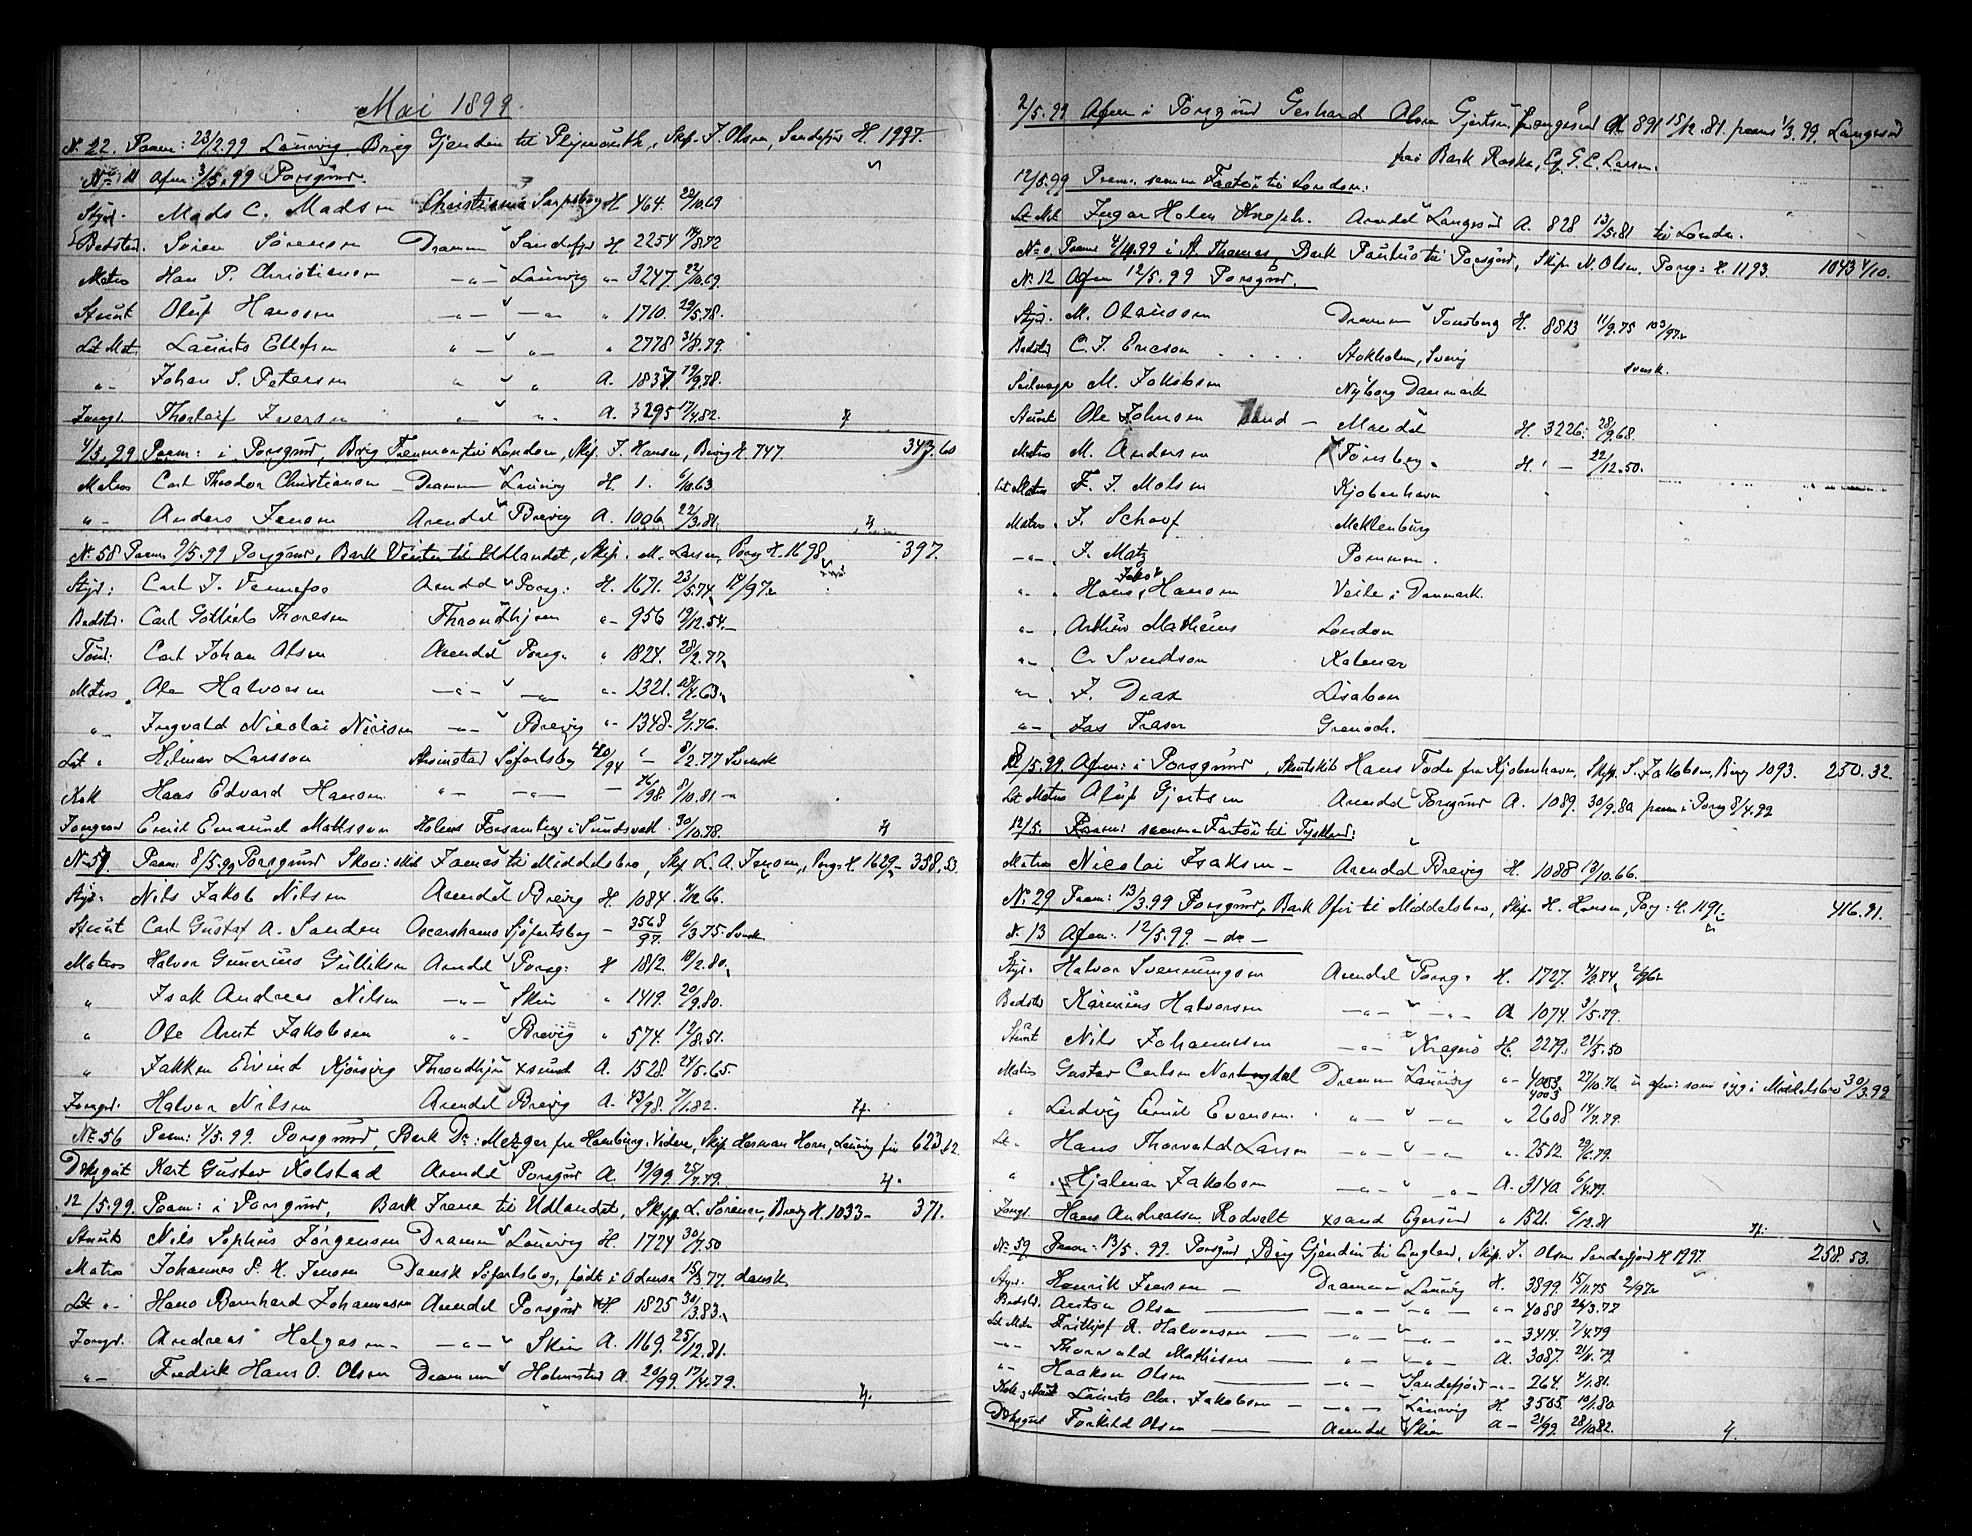 Mai 1899
N. 22. Paam: 23/2.99 Laurvig. Brig Gjendin til Plymouth, Skp. J. Olsen, Sandefjor H. 1997.
N. 11 Afm: 3/5.99 Porsgrund.
Styr. Mads C. Madsen Christiania Sarpsborg H. 464. 22/10.69
Bedstm. Sören Sörensen Drammen Sandefjor H. 2254 14/8.72
Matros Han P. Christiansen -"- Laurvig " 3247. 22/10.69.
Stuert Oluf Hansen -"- -"- " 1710. 29/5.78.
Let Mat. Laurits Ellefsen " - " - " 2778 31/8.79.
"- Johan S. Petersen " " A. 1837. 19/9.78.
Jongd. Thorleif Iversen " " A. 3295 17/4.82.
4/5.99. Paam: i Porsgrund, Brig Fremmon til London, Skp. J. Hansen, Brevig H. 747. 347.60
Matros Carl Theodor Christiansen Drammen Laurvig H. 1. 6/10.63.
"- Anders Jensen Arendal Brevig A. 1006 22/3.81.
N. 58 Paam 9/5.99 Porsgrund, Bark Vinter til Udlandet, Skp. M. Larsen, Porsg H. 1698 397.
Styr: Carl J. Tennefos Arendal Porsg: H. 1671. 23/5.74. 14/97
Bedstm. Carl Gottlieb Thoresen Throndhjem "- 956 19/12.54.
Töm: Carl Johan Olsen Arendal Porsg. " 1824. 28/2.77.
Matros Ole Halvorsen -"- -"- "- 1321. 4.63.
"- Ingvald Nicolai Nielsen -"- Brevig "- 1348. 9/1.76.
Let " Hilmar Larsson Söfartsbog 40/94 " - 8/2.77 Svensk
Kok Hans Edvard Hansen "- -"- - 76/98. 8/10.81 -
Jongmd Emil Emanuel Mattsson Holms Forsamling i Sundsvall. 30/10.78.
N. 57. Paam: 8/5.99 Porsgrund Skon: skib James til Middelsbro, Skp. L. A. Jensen, Porsg. H. 1629. 358.53.
Styr: Nils Jakob Nilsen Arendal Brevig H. 1084. /12 66.
Stuert Carl Gustaf A. Sanden Oscarshamns Sjöfartsbog - 3568/97. 6/3 75. Svensk
Matros Halvor Gunerius Gulliksen Arendal Porsg: H 1812. 10/2.80.
" Isak Andreas Nilsen -"- Skien " 1419. 20/9.80.
" Ole Arnt Jakobsen "- Brevig " 574. 12/8.51.
" Jakken Eivind Kjörsvig Throndhjem Xsund A. 1528. 24/5.65.
Jongd. Halvor Nilsen Arendal Brevig A. 43/98. 7/1.82.
N. 56 Paam: 4/5.99. Porsgrund, Bark Dr: Metzger fra Hamburg. Videre, Skp Herman Horn, Laurvig fir 623.12.
Dæksgut Karl Gustav Kolstad Arendal Porsgrund A. 19/99. 25/7.79.
12/5.99. Paam: i Porsgrund, Bark Irene til Udlandet, Skpp. L. Sörensen, Brevig H. 1033- 371.
Stuert Nils Sophus Jörgensen Drammen Laurvig H. 1724 30/7.50
Matros Johannes P. H. Jensen Dansk Söfartsbog, födt i Odense 15/3.77. dansk
Let "- Hans Bernhard Johannesen Arendal Porsgrund H 1825 30/3.83.
Jongd. Andreas Helgesen -"- Skien A. 1169. 25/12.81.
"- Fredrik Hans O. Olsen Drammen Holmestrd A. 20/99. 17/4.79.
2/5.99 Afm i Porsgrund Gerhard Olsen Gjertsen Langesund A 891 15/12.81. paam 1/3.99. Langesund
fra Bark Roska, Cp. G. C. Larsen.
12/5.99 Paam. samme Factori til London.
Let Mat Ingar Holm Arendal Langesund A. 828 13/5.81 til London.
N. 0. Paam 4/10.99 i St. Thomas, Bark til Porsgrund, Skp. N. Olsen. Porsg: H. 1193. 1043 4/10.
N. 12 Afm 12/5.99 Porsgrund.
Styr. M. Olausson Drammen Tonsberg H. 8813 11/9.75 103/97
Bedstm C. J. Ericson . . . . Stokholm, Sverig svensk.
Seilmager M. Jakobsen Nyborg Danmark
Stuert Ole Johnsen Mandal H. 3226. 28/9.68.
Matros M. Andersen Tönsberg. H. - 22/12.50.
Let Matros F. J. Molsen Kjöbenhavn
Matros. J. Schoof Meklenburg
-"-. J. Matz Pommern.
". Hans Jakob Hansen Veile i Danmark.
"- Arthur Mathews London
"- C. Svendson Kalmar
"- J. Diax Lisabon
"- Jas Fraser Grenoch.
/5.99. Afm: i Porsgrund, Skonskib Hans Tode fra Kjöbenhavn, Skp. S. Jakobsen, Brevig 1093. 250.32.
Let Matros Oluf Gjertsen Arendal Porsgrund A. 1089. 30/9.80 paam i Porsg 8/4.99
12/5. Paam: samme Fartöi til Tyskland:
Matros Nicolai Isaksen - Arendal Brevig H. 1088 13/10.66.
N. 29 Paam: 13/3.99 Porsgrund, Bark Ofir til Middelsbro, Skp. H. Hansen, Porsg: H. 1191. 416.91.
N. 13 Afm: 12/5.99. - do -
Styr. Halvor Svenningsen Arendal Porsg. H. 1727. 4/2.74
Bedstm Karinius Halvorsen -"- -"- A 1074. 3/5.79.
Stuert Nils Johannesen -"- Kragerö H. 2279. 21/5.50
Matros Gustav Carlsen Drammen Laurvig "- 4003. 27/10.76 afm: som syg i Middelsbro 30/3.99
4003
" Ludvig Emil Evensen. " - " - " 2608 14/7.79.
Let " Hans Thorvald Larsen -"- " - "- ". 2512. 29/6.79.
" Hjalmar Jakobsen -"- " "- A. 3140. 6/4.79.
Jongd. Hans Andreassen Rodvelt Xsand Egersund " 1521. 6/12.81
N. 59 Paam: 13/5.99. Porsgrund, Brig Gjendin til England, Skp. J. Olsen Sandefjord H 1997. 258.53.
Styr. Henrik Iversen - Drammen Laurvig H. 3899. 15/11.75 2/97
Bedstm. Anton Olsen -"- -"- "- 4088 26/3.77
Let Matr. Frithjof A. Halvorsen -"- -"- "- 3414. 7/4.79
-"- Thorvald Mathisen -"- -"- A. 3087. 21/1.79.
"- Haakon Olsen -"- Sandefjord -"- 264. 4/1.81.
Kok & Stuert Laurits Chr. Jakobsen - -"- Laurvig H. 3505. 10/1.80
Dæksgut Torkild Olsen Arendal Skien A - 21/99. 28/10.82.